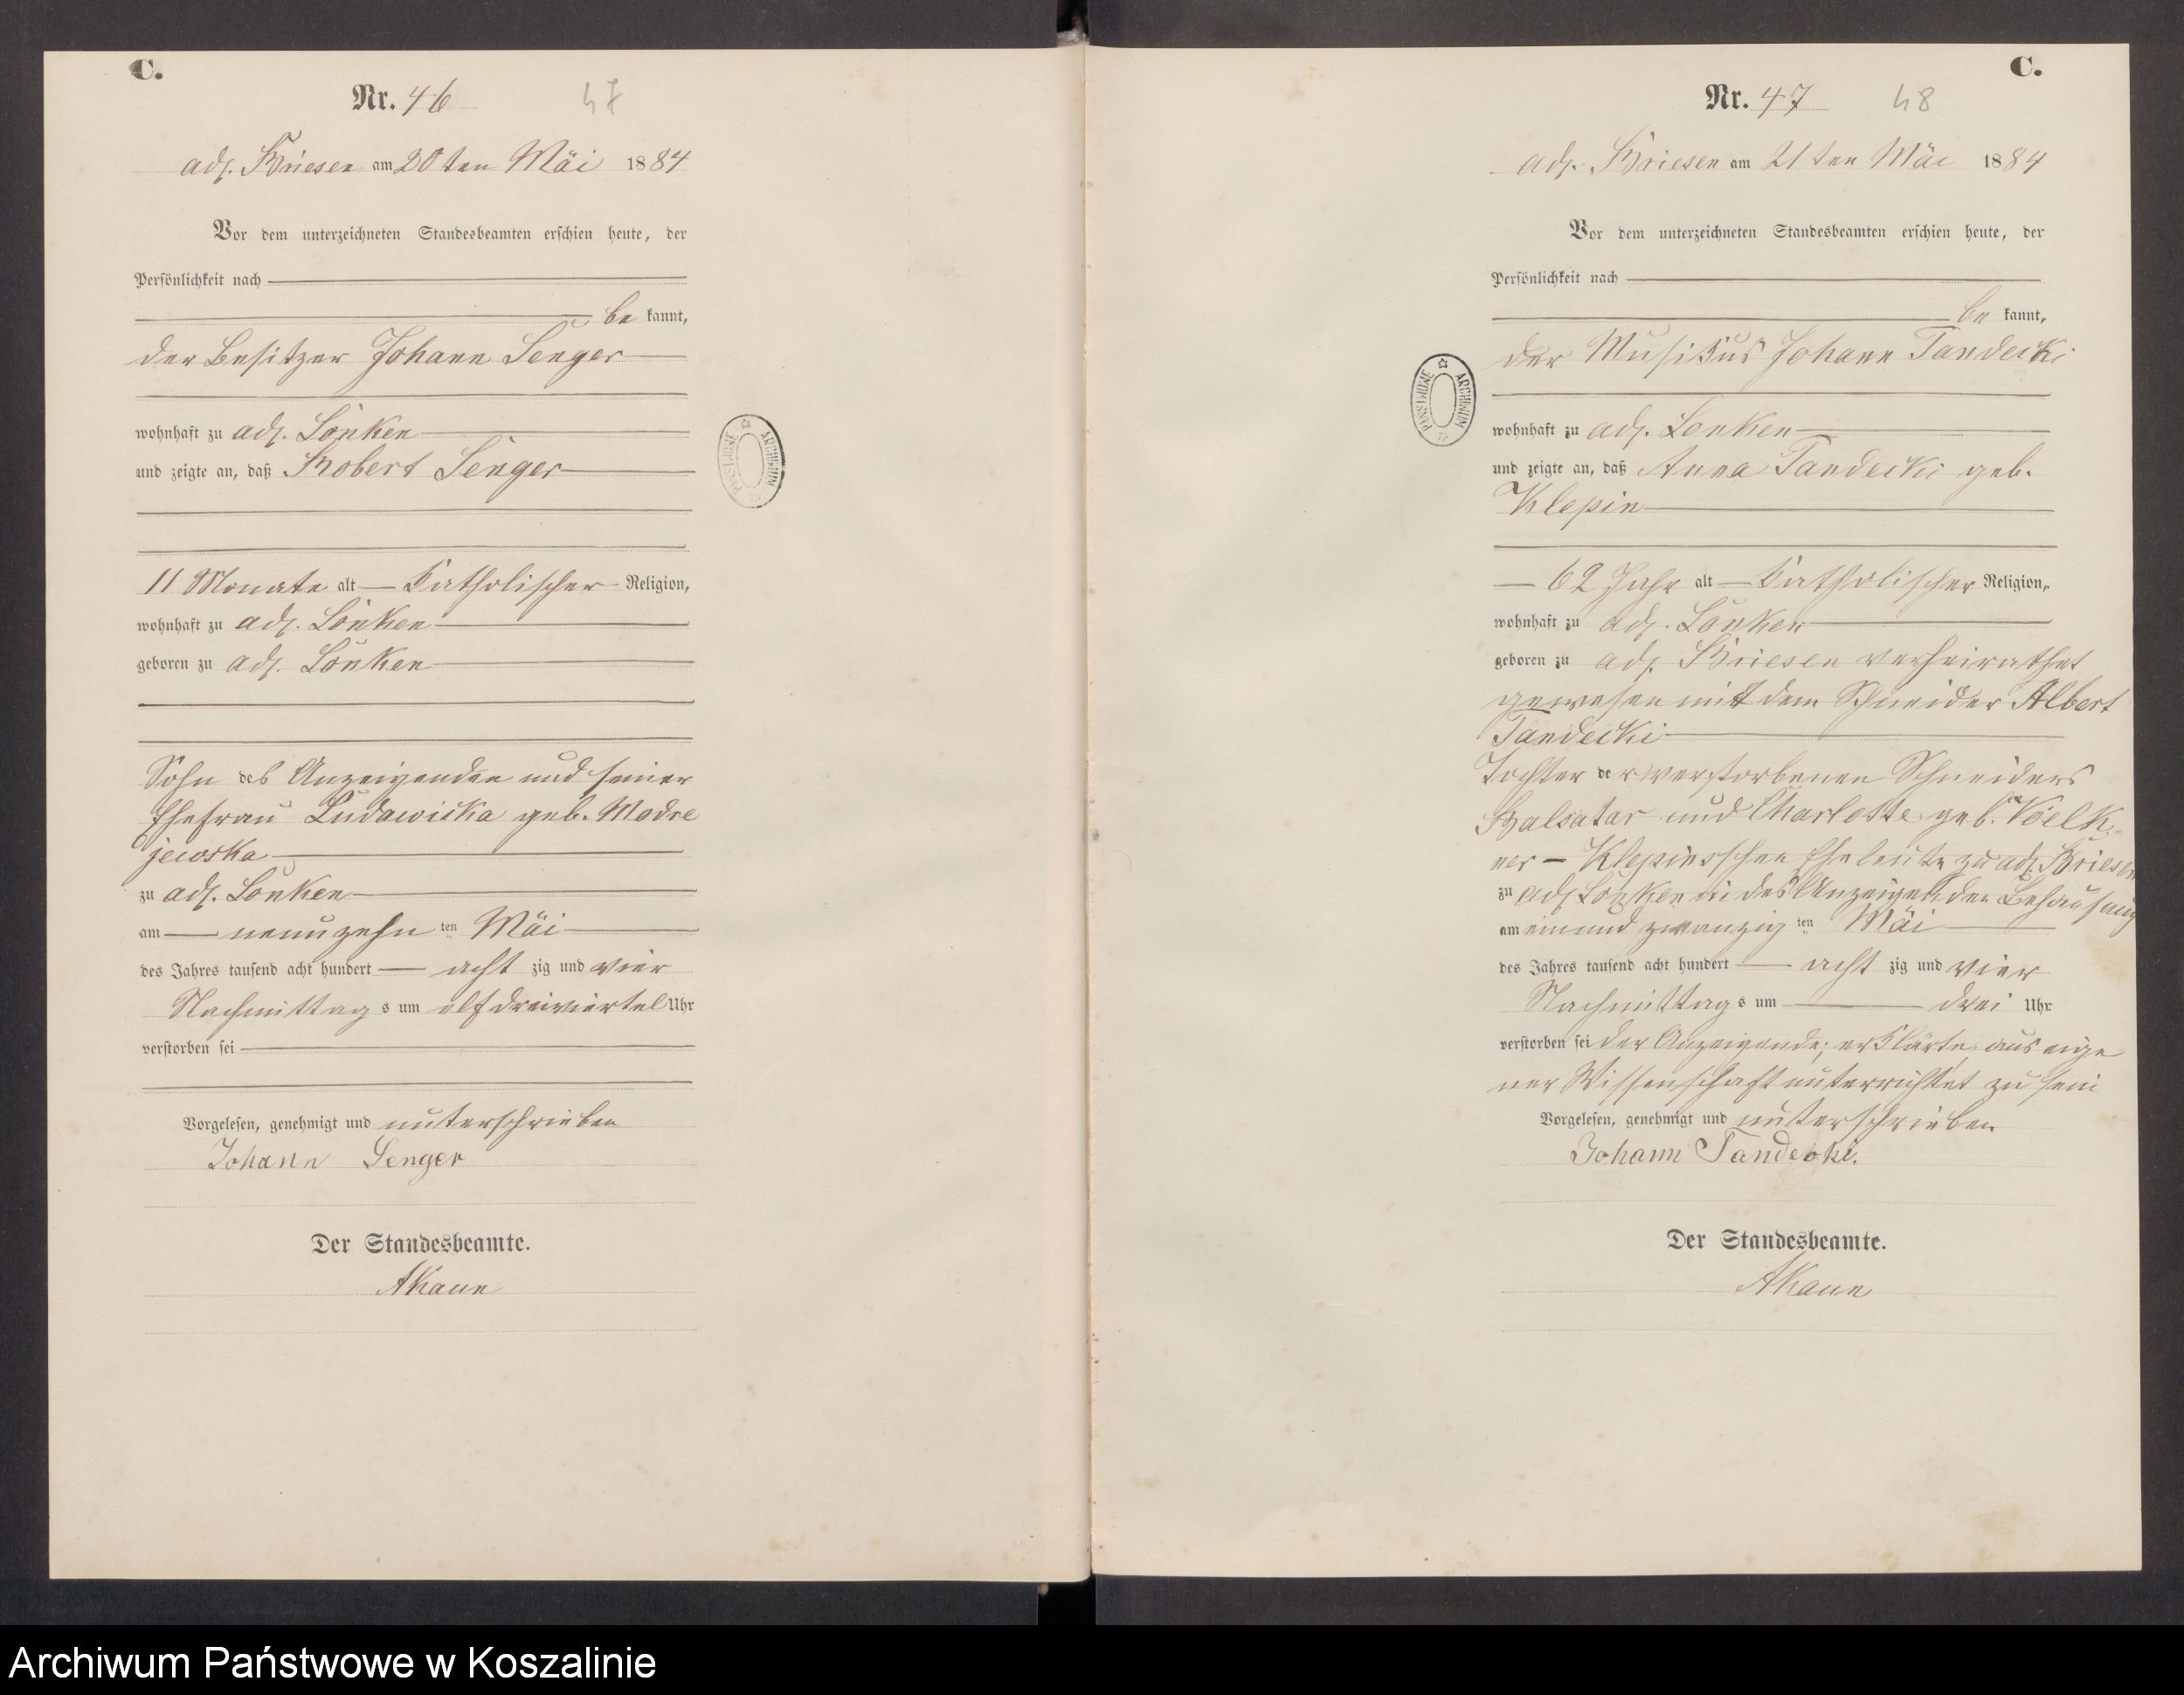 C.
Nr. 46
47
adl. Briesen am 20ten Mai 1884
Vor dem unterzeichneten Standesbeamten erschien heute, der
Persönlichkeit nach
be kannt,
der Besitzer Johann Senger
wohnhaft zu adl. Lonken
und zeigte an, daß Robert Senger
11 Monate alt katholischer Religion,
wohnhaft zu adl. Lonken
geboren zu adl. Lonken
Sohn des Anzeigenden und seiner
Ehefrau Ludowicka geb. Modre
jewska
zu adl. Lonken
am neunzehn ten Mai
des Jahres tausend acht hundert acht zig und vier
Nachmittag s um elf dreiviertel Uhr
verstorben sei
Vorgelesen, genehmigt und unterschrieben
Johann Senger
Der Standesbeamte.
AKaun
ARCHIWUM PAŃSTWOWE
C.
Nr. 47
48
adl. Briesen am 21ten Mai 1884
Vor dem unterzeichneten Standesbeamten erschien heute, der
Persönlichkeit nach
be kannt,
der Musikus Johann Tandecki
wohnhaft zu adl. Lonken
und zeigte an, daß Anna Tandecki geb.
Klepin
62 Jahr alt katholischer Religion,
wohnhaft zu adl. Lonken
geboren zu adl. Briesen verheirathet
gewesen mit dem Schneider Albert
Tandecki
Tochter der verstorbenen Schneiders
Balsatar und Charlotte geb. Völk-
ner - Klepinsschen Eheleute zu adl. Briesen
zu adl. Lonken in des Anzeigenden Behausung
am einundzwanzig ten Mai
des Jahres tausend acht hundert acht zig und vier
Nachmittag s um drei Uhr
verstorben sei der Anzeigende; erklärte aus eige
ner Wissenschaft unterrichtet zu sein
Vorgelesen, genehmigt und unterschrieben
Johann Tandecki.
Der Standesbeamte.
AKaun
ARCHIWUM PAŃSTWOWE
Archiwum Państwowe w Koszalinie